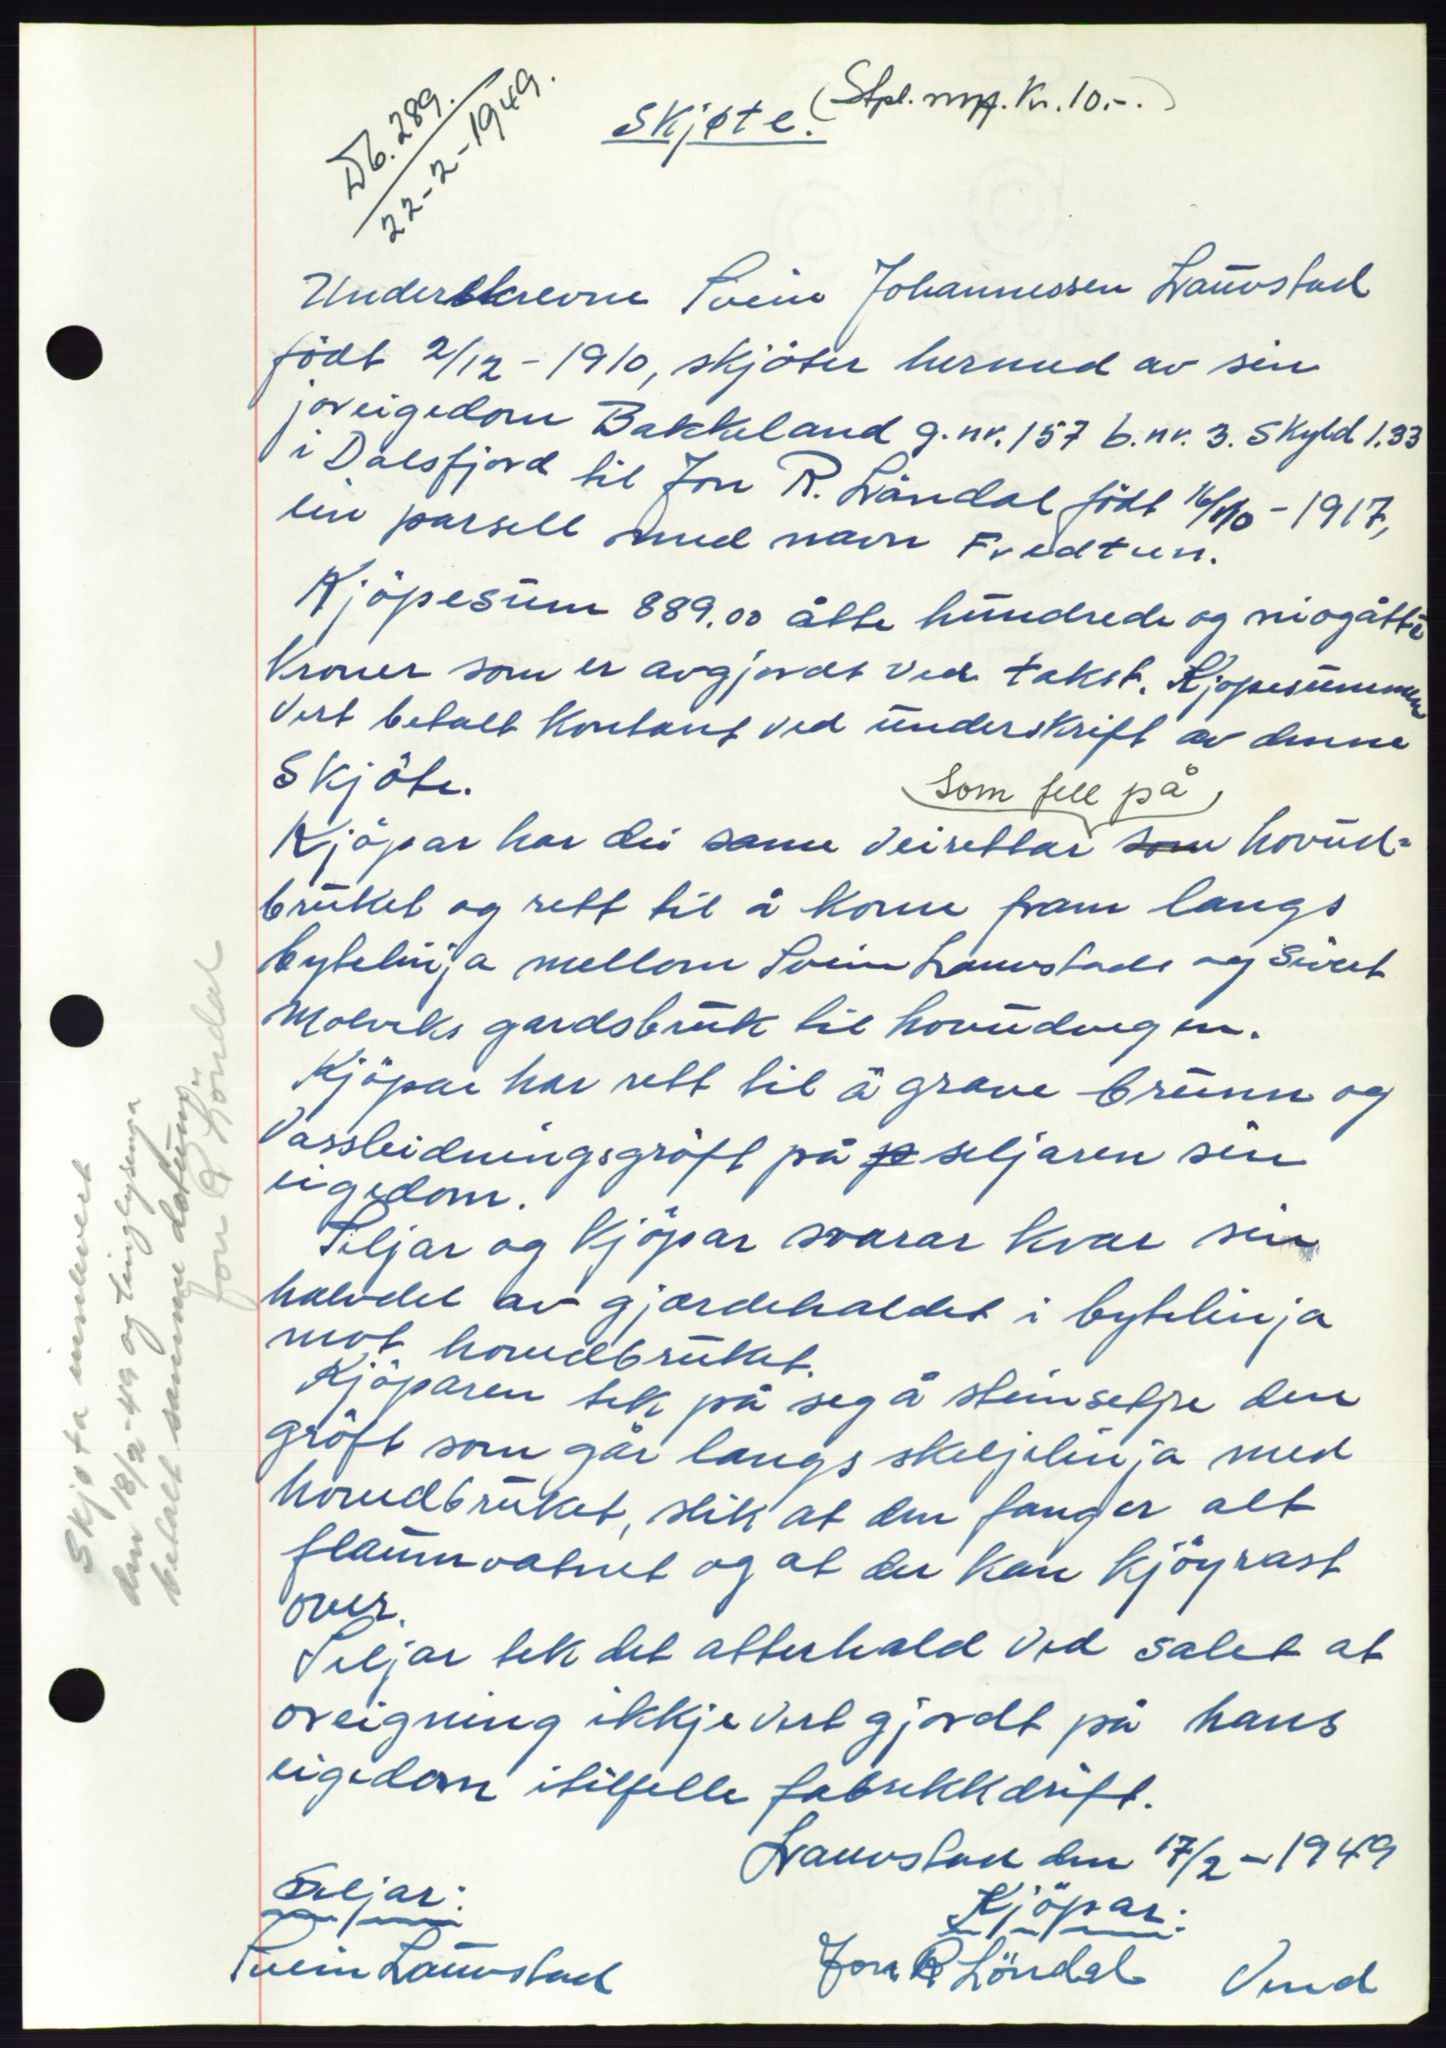 Db. 289.
22-2-1949.
Skjøte. (Stpl. mrk. Kr. 10.-.)
Underskrevne Svein Johannessen Lauvstad
födt 2/12 - 1910, skjöter hermed av sin
joreigedom Bakkeland g.nr. 157 b.nr. 3. Skyld 1.33
i Dalsfjord til Jon R. Löndal födt 16/10 - 1917,
ein parsell med navn Fredtun.
Kjöpesum 889.00 åtte hundrede og niogåtti
kroner som er avgjordt ved takst. Kjöpesummen
vert betalt kontant ved underskrift av denne
Skjöte.
som fell på
Kjöpar har dei same veirettar som hovud-
bruket og rett til å kome fram langs
bytelinja mellom Svein Lauvstads og Sivert
Molviks gardsbruk til hovudvegen.
Kjöpar har rett til å grave brunn og
Vassleidningsgröft på p seljaren sin
eigedom.
Seljar og kjöpar svarar kvar sin
halvdel av gjærdehaldet i bytelinja
mot hovudbruket.
Kjöparen tek på seg å steinsetje den
gröft som går langs skeljelinja med
hovudbruket, slik at den fanger alt
flaumvatnet og at der kan kjöyrast
over.
Seljar tek det atterhald ved salet at
oreigning ikkje vert gjordt på hans
eigedom i tilfelle fabrikkdrift.
Lauvstad den 17/2 - 1949
Seljar:
Kjöpar:
Svein Lauvstad
Jon R Löndal
Vend
Skjøta innlevert
den 18/2-49 og tinglysinga
betalt samme datum
Jon R Löndal